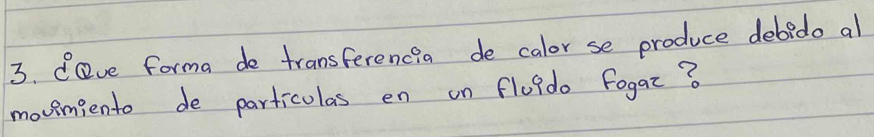 3. ¿Que forma de transferencia de calor se produce debido al
movimiento de particulas en un fluido fogaz?